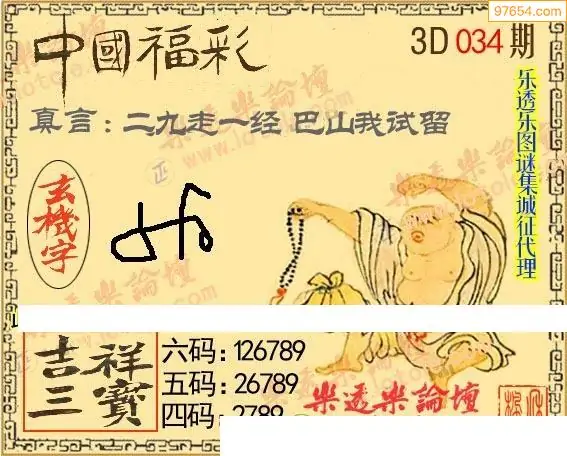 97654.com
中國福彩
3D 034 期
真言：二九走一经 巴山我试留
乐透乐图谜集城征代理
玄機字
吉祥三寶
六码:126789
五码:26789
四码:2789
樂透樂論壇